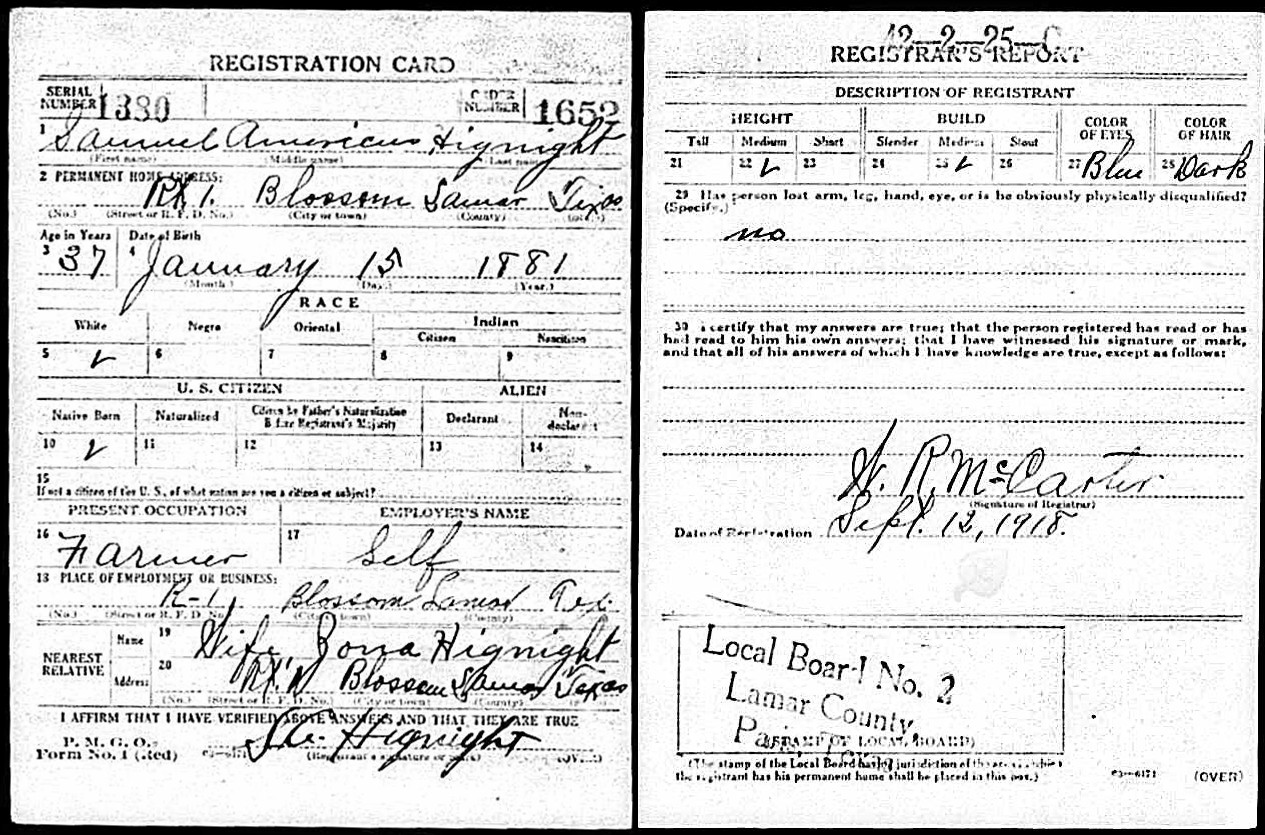 REGISTRATION CARD
SERIAL NUMBER 1380
ORDER NUMBER 1652
1 Samuel Americus Hignight
(First name) (Middle name) (Last name)
2 PERMANENT HOME ADDRESS:
Rt 1. Blossom Lamar Texas
(No.) (Street or R. F. D. No.) (City or town) (County) (State)
Age in Years Date of Birth
3 37 4 January 15 1881
(Month.) (Day.) (Year.)
RACE
White Negro Oriental Indian
Citizen Noncitizen
5 6 7 8 9
U. S. CITIZEN ALIEN
Native Born Naturalized Citizen by Father's Naturalization Before Registrant's Majority Declarant Non-declarant
10 11 12 13 14
15
If not a citizen of the U. S., of what nation are you a citizen or subject?
PRESENT OCCUPATION EMPLOYER'S NAME
16 Farmer 17 Self
18 PLACE OF EMPLOYMENT OR BUSINESS:
R-1 Blossom Lamar Tex
(No.) (Street or R. F. D. No.) (City or town) (County)
NEAREST RELATIVE
Name 19 Wife, Zona Hignight
Address 20 Rt. 1 Blossom Lamar Texas
(No.) (Street or R. F. D. No.) (City or town) (County)
I AFFIRM THAT I HAVE VERIFIED ABOVE ANSWERS AND THAT THEY ARE TRUE
P. M. G. O.
Form No. 1 (Red) S. A. Hignight
(Registrant's signature or mark) (OVER)
42-2-25-C
REGISTRAR'S REPORT
DESCRIPTION OF REGISTRANT
HEIGHT BUILD COLOR OF EYES COLOR OF HAIR
Tall Medium Short Slender Medium Stout
21 22 23 24 25 26 27 Blue 28 Dark
29 Has person lost arm, leg, hand, eye, or is he obviously physically disqualified?
(Specify.)
no
30 I certify that my answers are true; that the person registered has read or has
had read to him his own answers; that I have witnessed his signature or mark,
and that all of his answers of which I have knowledge are true, except as follows:
W. R. McCarter
(Signature of Registrar)
Date of Registration Sept. 12, 1918.
Local Board No. 2
Lamar County,
Paris,
(STAMP OF LOCAL BOARD)
(The stamp of the Local Board having jurisdiction of the area in which
the registrant has his permanent home shall be placed in this box.)
03-6171 (OVER)